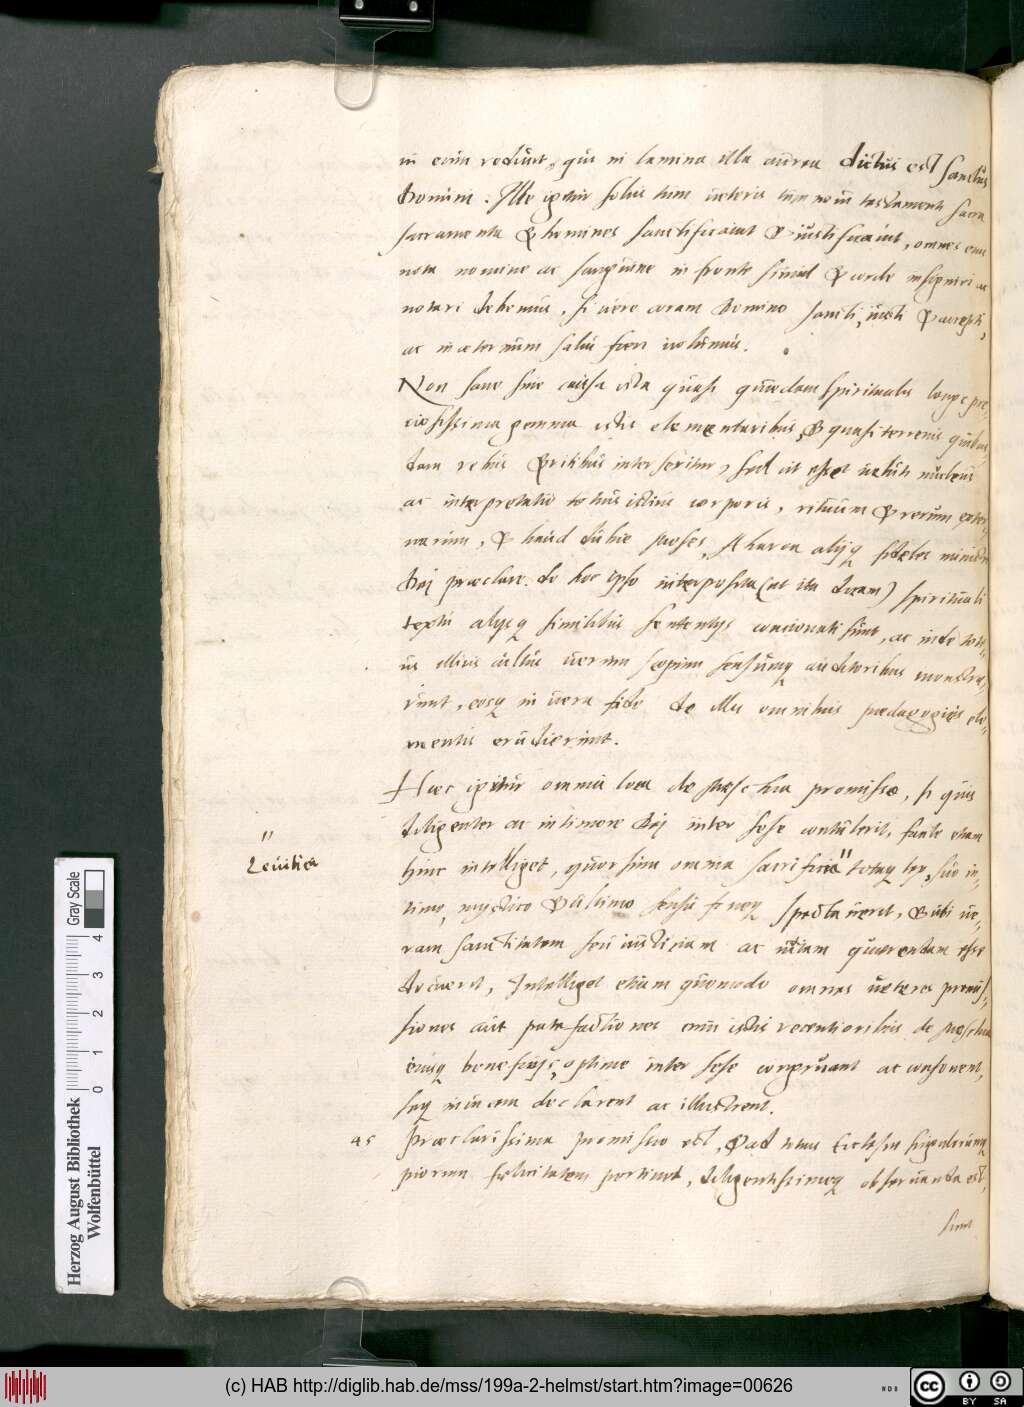 in eum rediunt, qui in lamina illa aurea dictus est Sanctus
Domini. Ille igitur solus tum veteris tum novi testamenti sacra
sacramenta & homines sanctificavit & iustificavit, omnes enim
nota nomine ac sanguine in fronte simul & corde insigniri ac
notari debemus, si vere coram Domino sancti, iusti & accepti,
ac in æternum salvi fieri volumus.
Non sane sine causa ista quasi quædam spiritualis longe pre-
ciosissima gemma istis elementaribus, & quasi terrenis quibus
dam rebus & ritibus interseritur, sed ut esset veluti nucleus
ac interpretatio totius istius corporis, rituum & rerum exter-
narum, & haud dubie Moses, Aharon alijq fideles ministri
Dei præclare de hoc ipso interposita (ut ita dicam) spirituali
textu alijsq similibus sententijs concionati sunt, ac inde toti-
us illius cultus verum scopum sensumq auditoribus monstra-
runt, eosq in vera fide de illis omnibus pædagogicis ele-
mentis erudierunt.
Hæc igitur omnia loca de Messchia promisso, si quis
diligenter ac intimore Dei inter sese contulerit, facile etiam
hinc intelliget, quorsum omnia sacrificia " totaq lex, suo in-
" Levitica
timo, mystico & ultimo sensu fineq spectaverit, & ubi ve-
ram sanctitatem seu iusticiam ac vitam quærendam esse
docuerit, Intelliget etiam quomodo omnes veteres promis-
siones aut patefactiones cum istis recentioribus de Messchia
eiusq beneficijs, optime inter sese congruant ac consonent,
seq invicem declarent ac illustrent.
45 Præclarissima promissio est, & ad totius Ecclesiæ singulorumq
piorum felicitatem pertinet, diligentissimeq observanda est,
sunt
Gray Scale
0 1 2 3 4
Herzog August Bibliothek
Wolfenbüttel
(c) HAB http://diglib.hab.de/mss/199a-2-helmst/start.htm?image=00626
cc BY SA